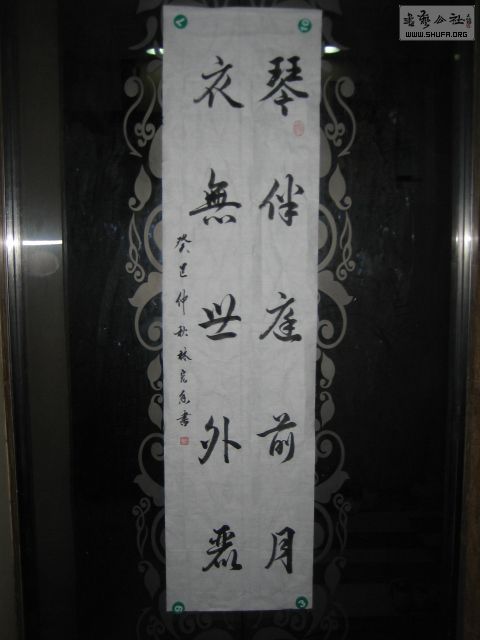 琴伴庭前月
衣無世外
癸巳仲秋林書
書藝公社
WWW.SHUFA.ORG